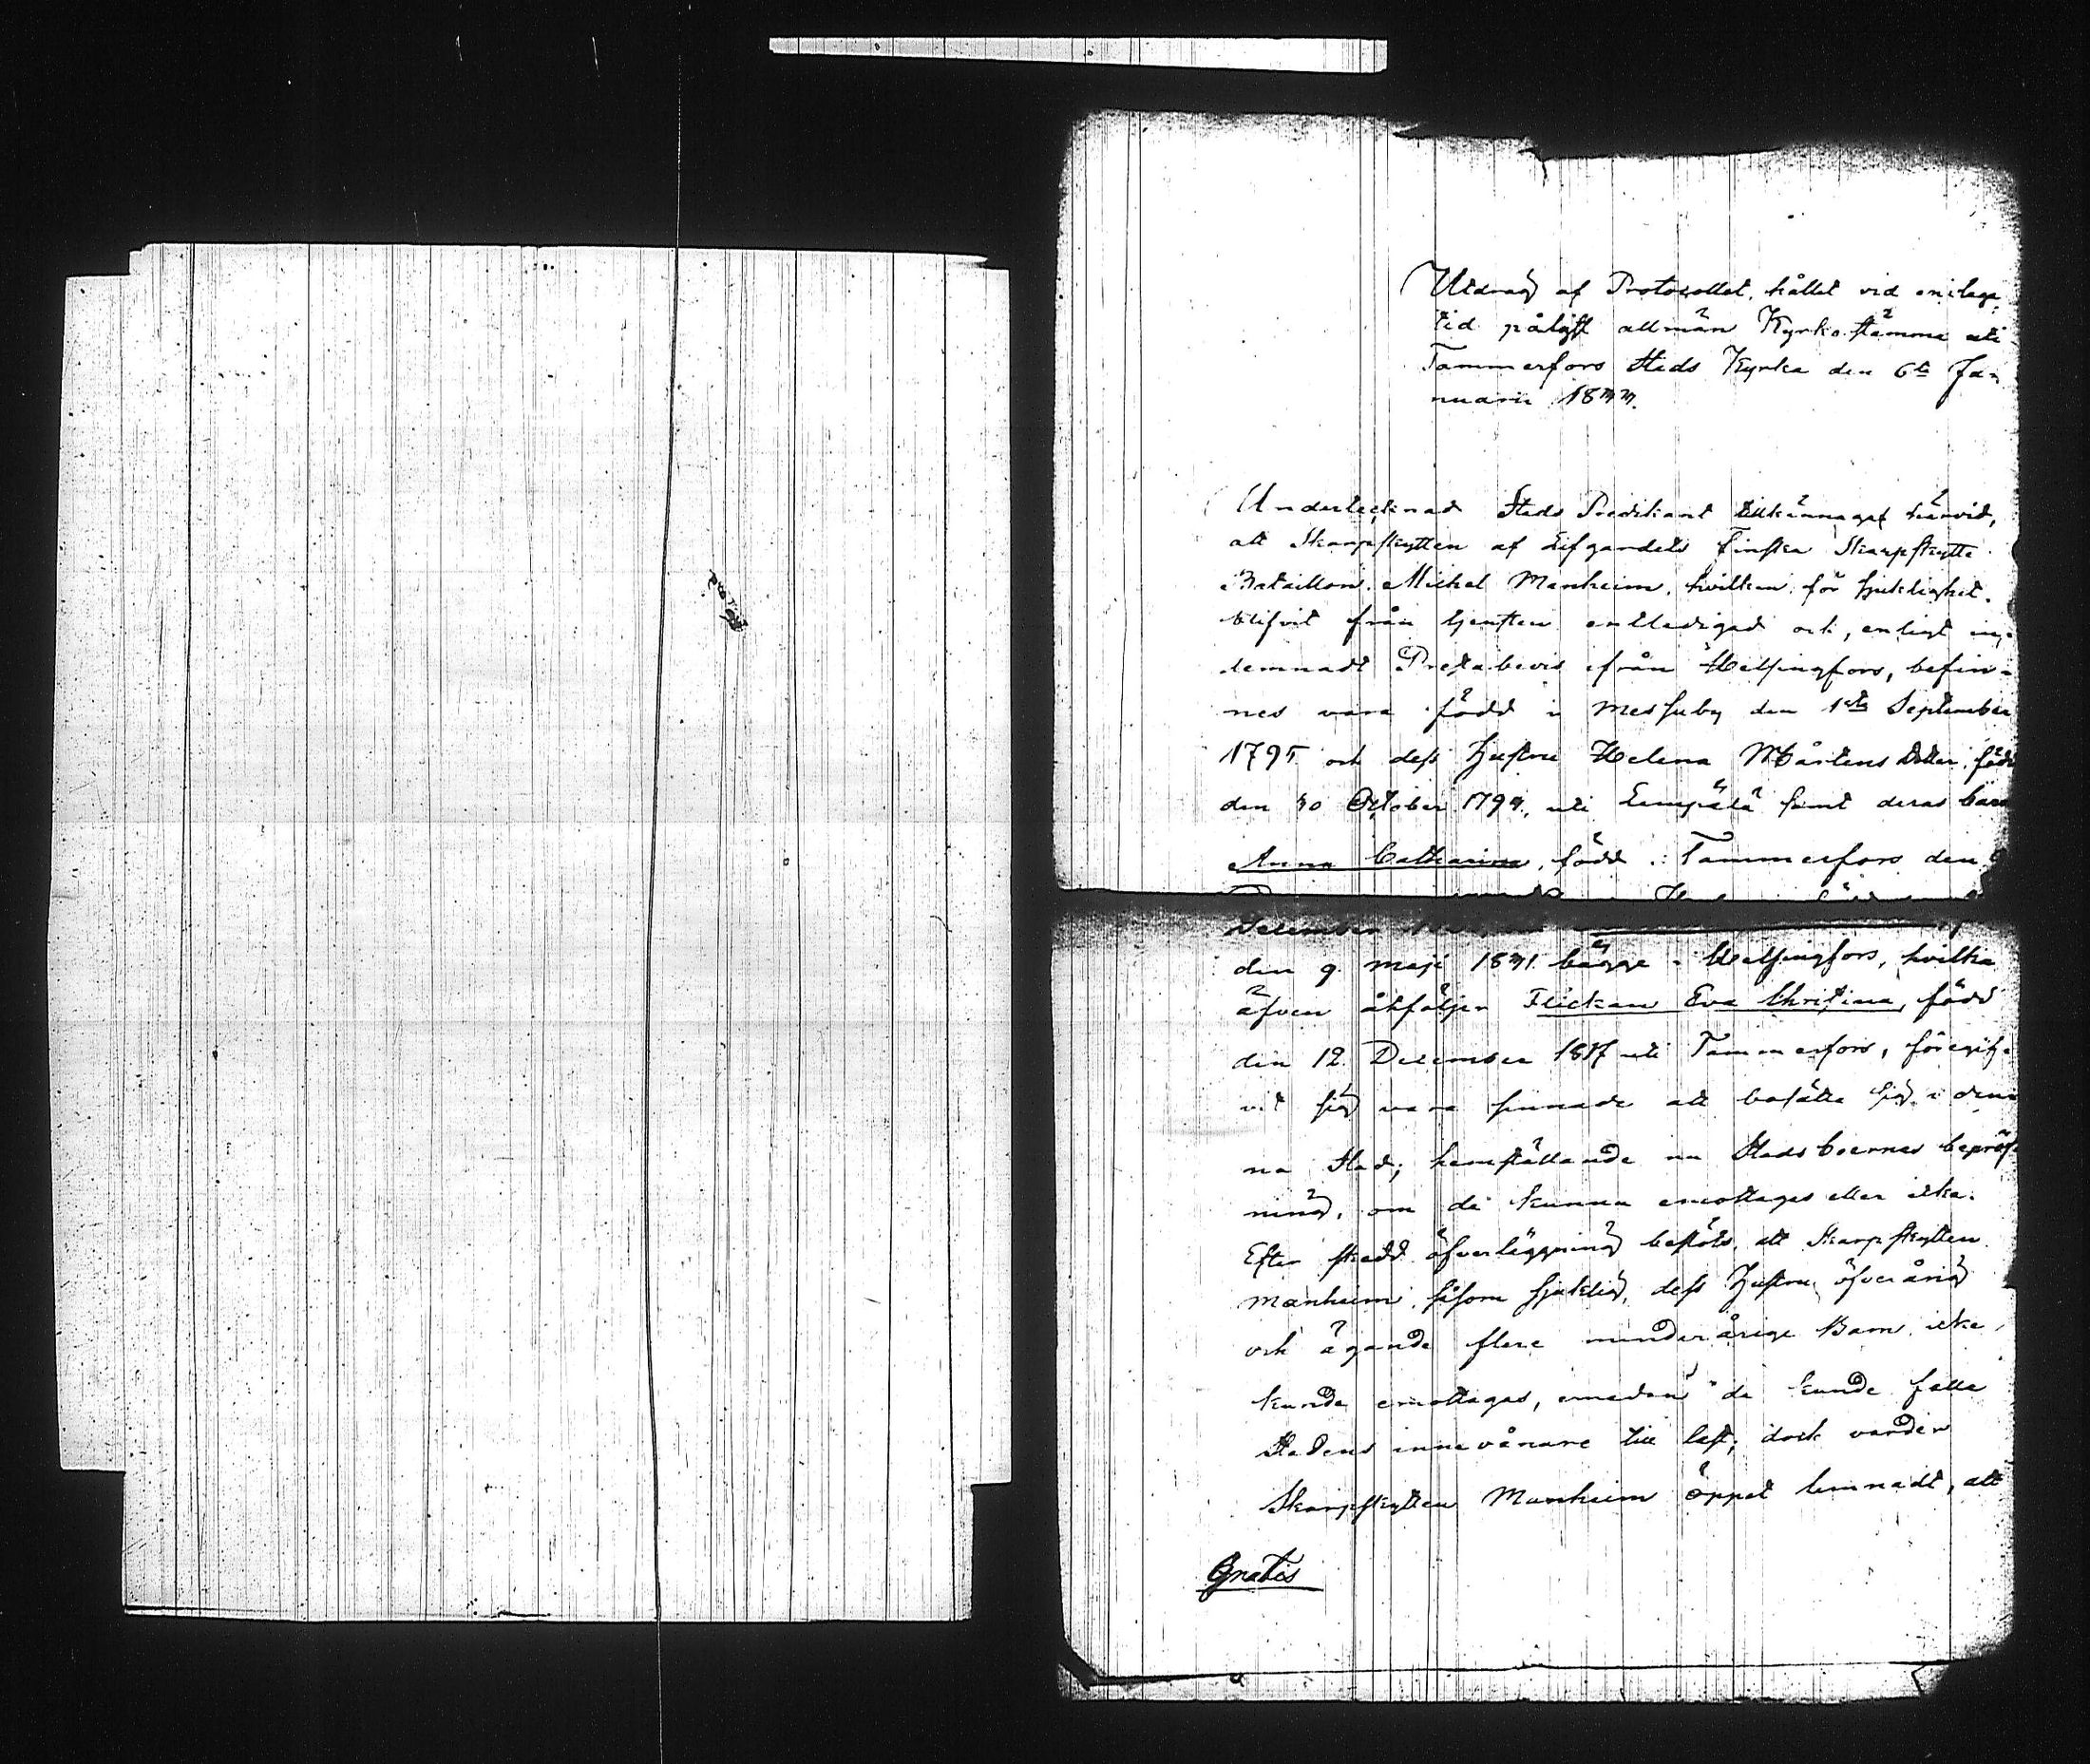 Utdrag af Protocollet, hållet vid en i laga
tid pålyst allmän Kyrkostämma uti
Tammerfors Stads Kyrka den 6te Ja-
nuarii 1833.
Undertecknad Stads Predikant tillkännagaf härvid,
att Skarpskytten af Lifgardets Finska Skarpskytte
Bataillon, Michel Manheim, hvilken för sjuklighet
blifvit från tjensten entledigad och, enligt in-
lemnadt Prestabevis ifrån Helsingfors, befin-
nes vara född i Messuby den 1sta September
1795 och dess Hustru Helena Mårtens Dotter, född
den 30 October 1793, uti Lempälä samt deras barn
Anna Catharina, född i Tammerfors den
December
den 9 Maji 1831 bägge i Helsingfors, hvilka
äfven åtföljer Flickan Eva Christina, född
den 12 December 1817 uti Tammerfors, föregif-
vit sig vara sinnade att bosätta sig i den-
na Stad; hemställande nu Stadsboernas bepröf-
ning, om de kunna emottagas eller icke.
Efter skedd öfverläggning beslöts, att Skarpskytten
Manheim, såsom sjuklig, dess Hustru öfverårig
och ägande flere minderårige Barn, icke
kunde emottagas, emedan de kunde falla
Stadens innevånare till last; dock varder
Skarpskytten Manheim öppet lemnadt, att
Gratis